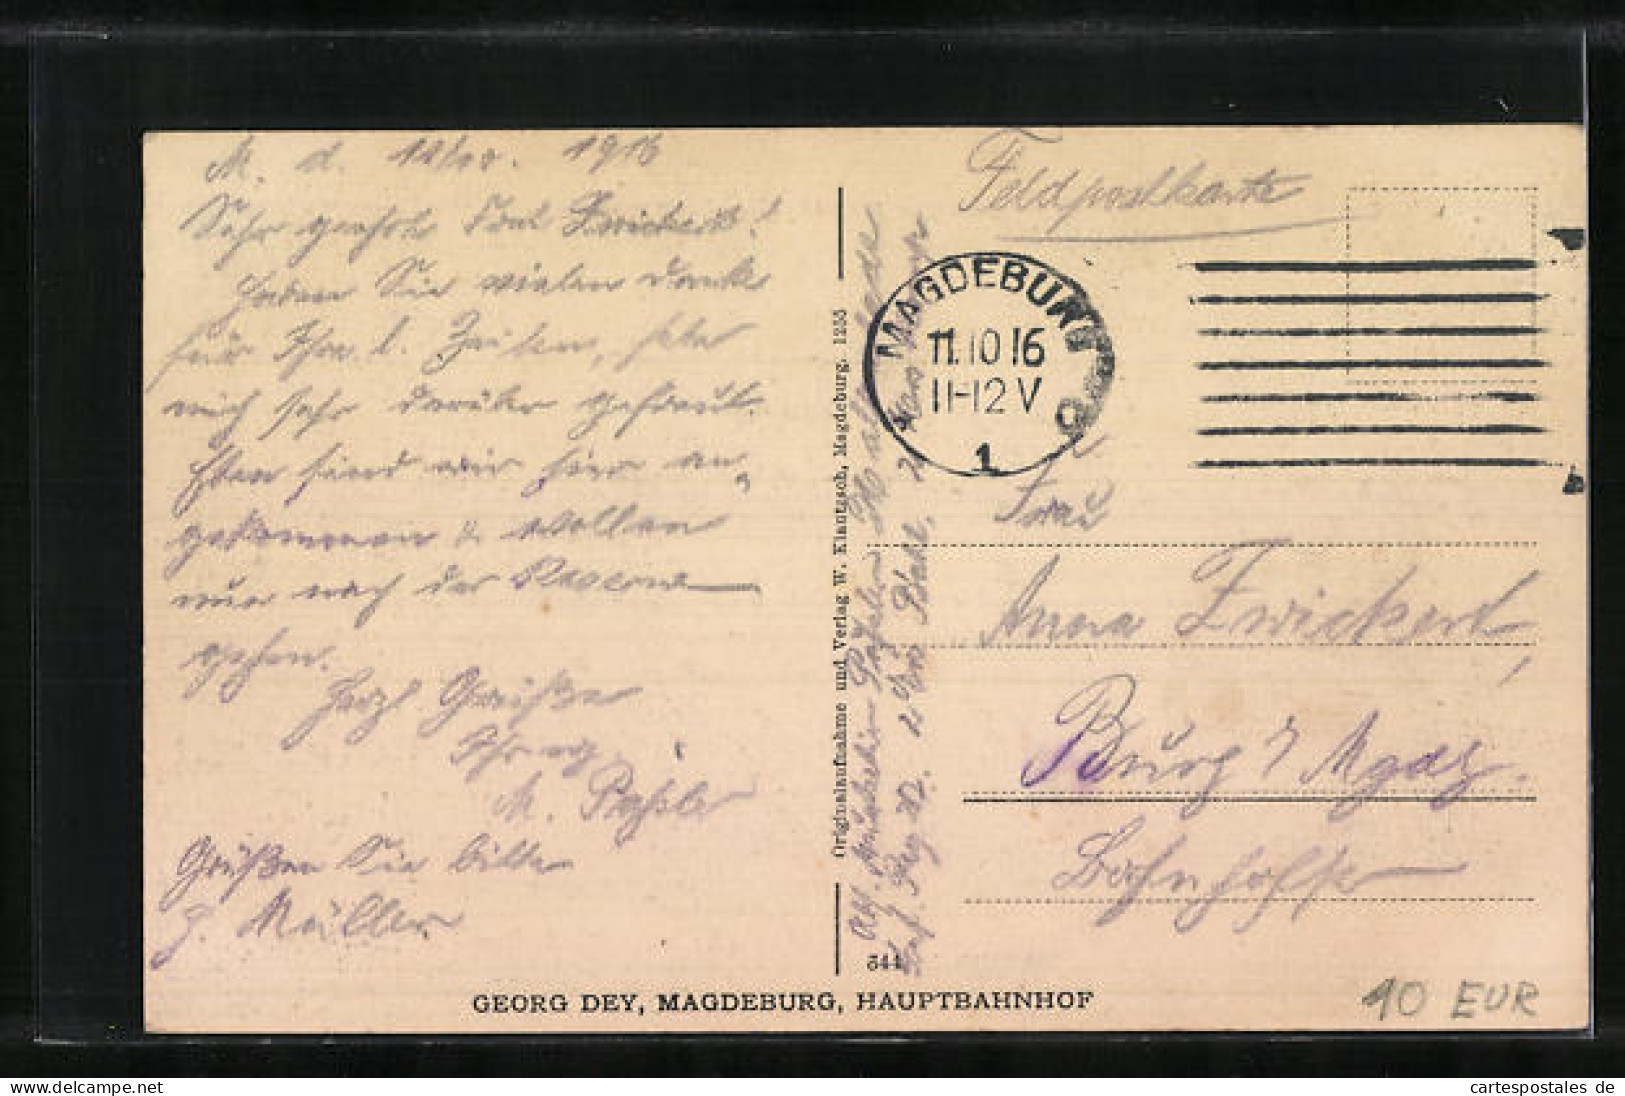 M. d. 11/10. 1916
Sehr geehrte Frl Zwickert!
Haben Sie vielen Dank
für Ihre l. Zeilen, habe
mich sehr darüber gefreut.
Eben sind wir hier an-
gekommen & wollen
nun nach der Kaserne
gehen.
Herzl Grüße
Ihr
M.
Grüßen Sie bitte
Müller
Originalaufnahme und Verlag W. Klautzsch, Magdeburg. 1255
544
Feldpostkarte
MAGDEBURG
11.10.16
11-12 V
1
Frau
Anna Zwickert
Burg b/ Mgdbg.
Bahnhofstr
GEORG DEY, MAGDEBURG, HAUPTBAHNHOF
10 EUR
cartespostales de